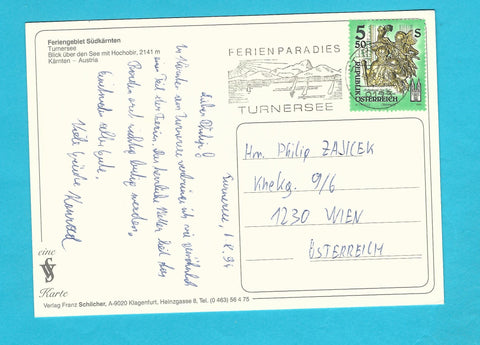 Feriengebiet Südkärnten
Turnersee
Blick über den See mit Hochobir, 2141 m
Kärnten – Austria
FERIENPARADIES
TURNERSEE
5 50 S
REPUBLIK
ÖSTERREICH
Turnersee, 1.8.94
Lieber Philip!
In Kärnten am Turnersee verbringe ich wie
einen Teil der Ferien. Das herrliche Wetter läßt das
Baden erst richtig lustig werden.
alles Gute.
Viele Grüße Konrad
Hrn. Philip ZAJICEK
9/6
1230 WIEN
ÖSTERREICH
eine
Karte
Verlag Franz Schilcher, A-9020 Klagenfurt, Heinzgasse 8, Tel. (0 463) 56 4 75